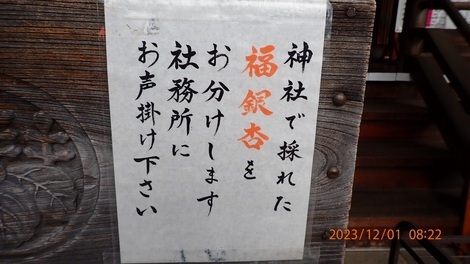 神社で採れた
福銀杏を
お分けします
社務所に
お声掛け下さい
2023/12/01 08:22